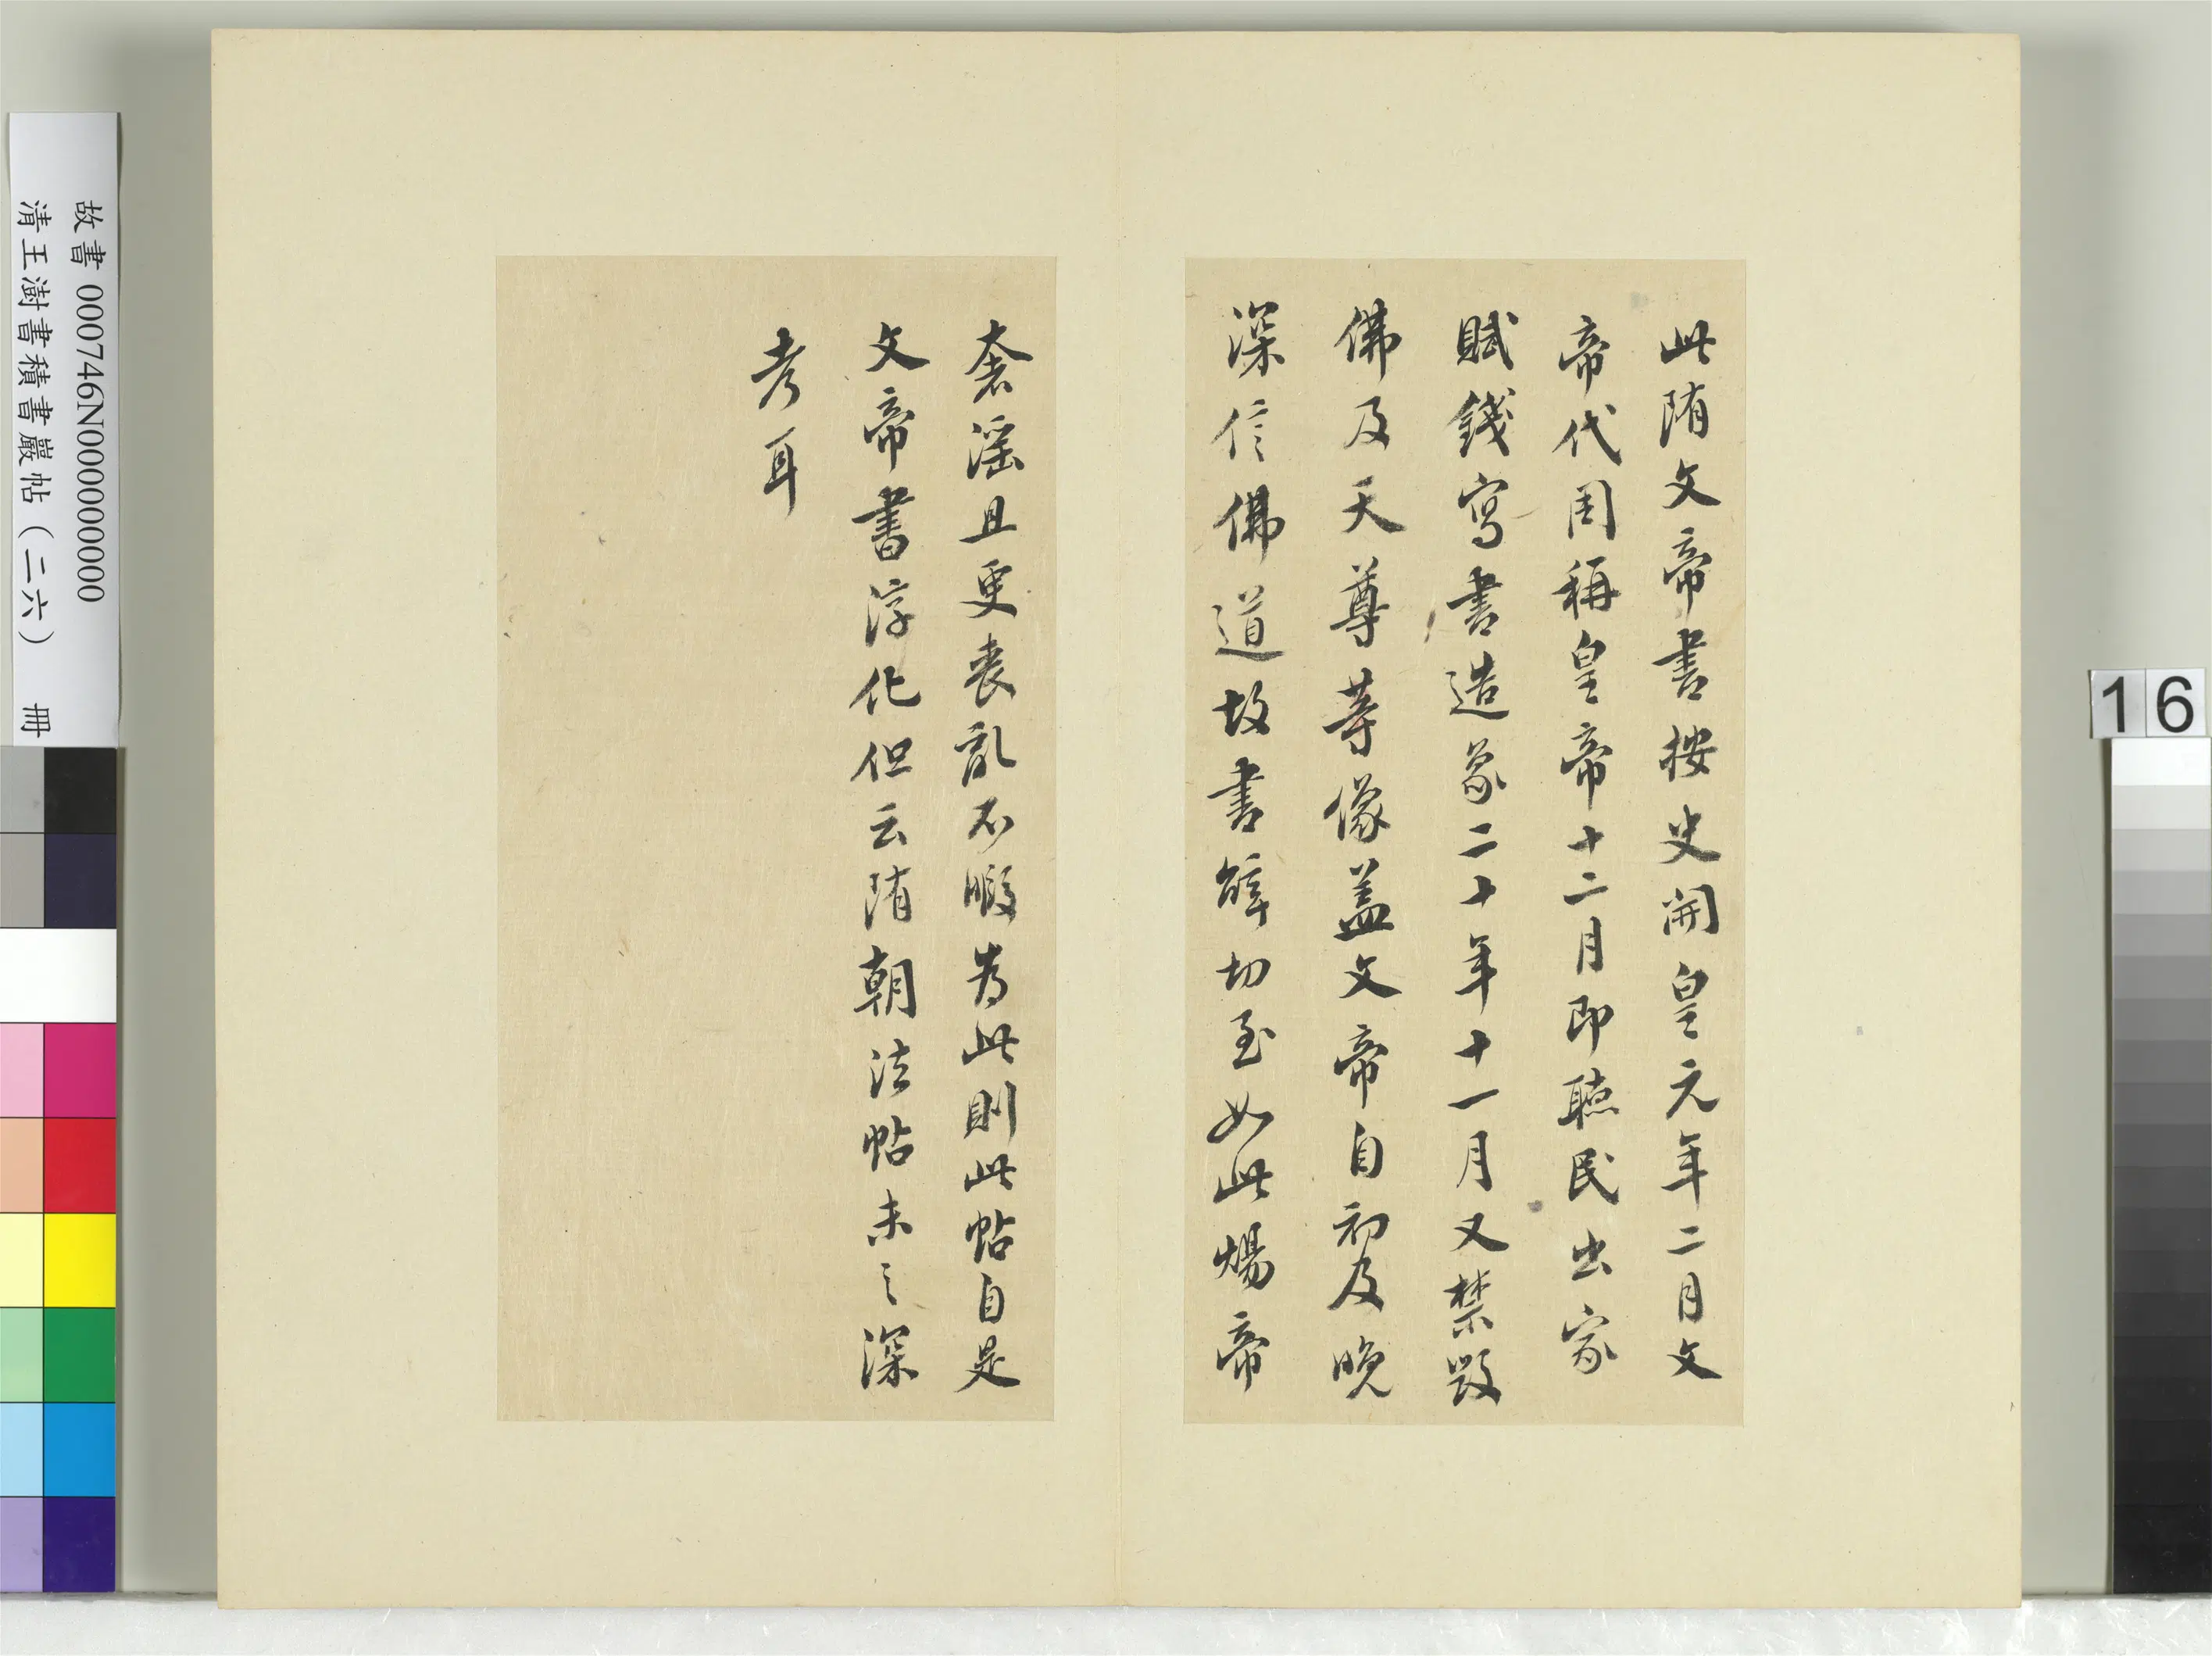 此隋文帝書按史開皇元年二月文
帝代周稱皇帝十二月即聽民出家
賦錢寫書造象二十年十一月又禁毀
佛及天尊等像蓋文帝自初及晚
深信佛道故書辭切至如此煬帝
奢淫且更喪亂不暇為此則此帖自是
文帝書淳化但云隋朝法帖未之深
考耳
故書 000746N000000000
清王澍書積書巖帖（二六） 冊
16